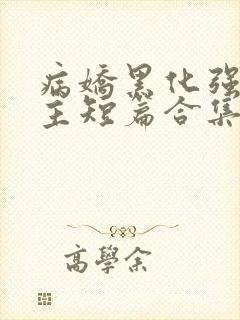 病嬌黑化強
主短篇合集
高學余